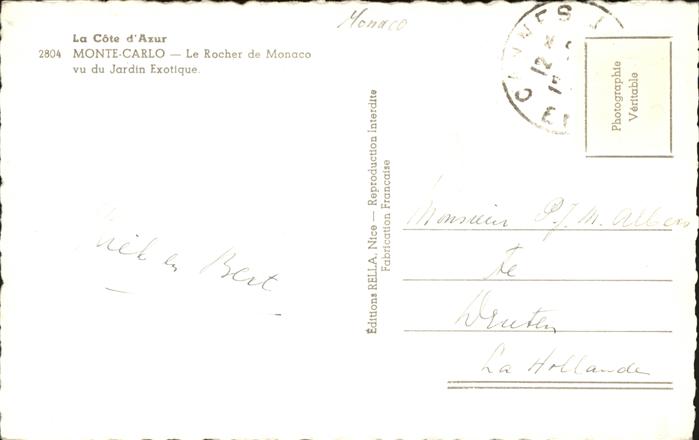 La Côte d'Azur
2804 MONTE-CARLO — Le Rocher de Monaco
vu du Jardin Exotique.
Monaco
CANNES
12
Photographie
Véritable
Éditions RELLA, Nice — Reproduction Interdite
Fabrication Française
en Bert
Monsieur P.J.M. Albers
Te
Druten
La Hollande